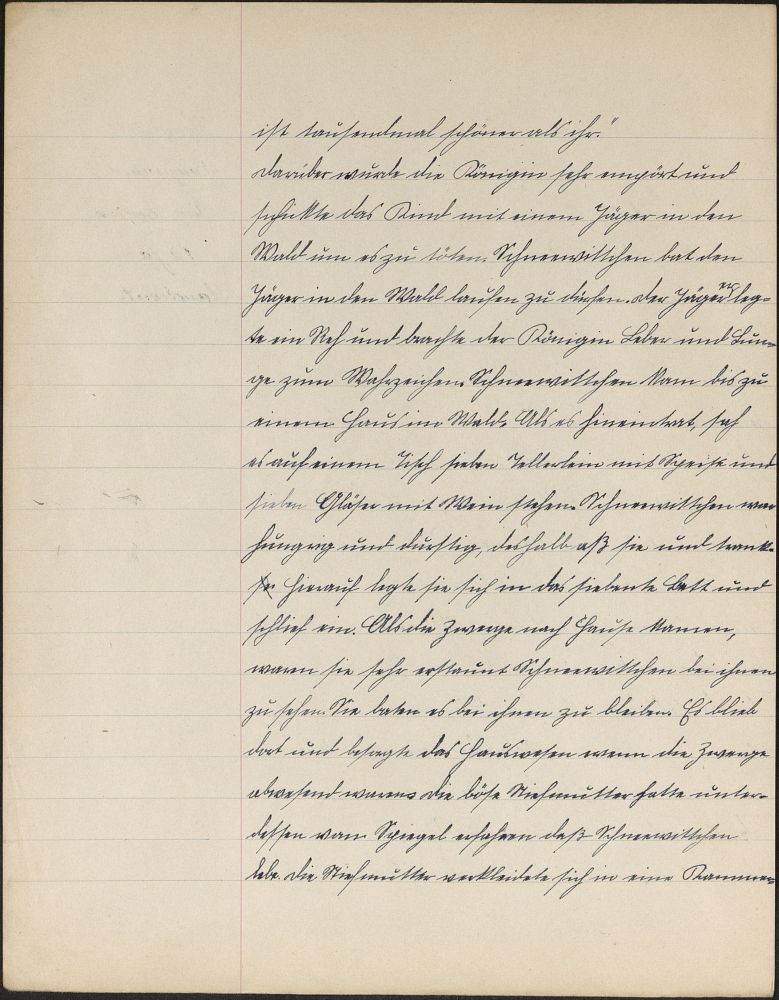 ist tausendmal schöner als ihr."
Darüber wurde die Königin sehr empört und
schickte das Kind mit einem Jäger in den
Wald um es zu töten. Schneewittchen bat den
Jäger in den Wald laufen zu dürfen. Der Jäger erleg-
te ein Reh und brachte der Königin Leber und Lun-
ge zum Wahrzeichen. Schneewittchen kam bis zu
einem Haus im Wald. Als es hineintrat, sah
es auf einem Tisch sieben Tellerlein mit Speise und
sieben Gläser mit Wein stehen. Schneewittchen war
hungrig und durstig, deshalb aß sie und trank.
Hierauf legte sie sich in das siebente Bett und
schlief ein. Als die Zwerge nach Hause kamen,
waren sie sehr erstaunt Schneewittchen bei ihnen
zu sehen. Sie baten es bei ihnen zu bleiben. Es blieb
dort und besorgte das Hauswesen wenn die Zwerge
abwesend waren. Die böse Stiefmutter hatte unter-
dessen vom Spiegel erfahren daß Schneewittchen
lebe. Die Stiefmutter verkleidete sich in eine Krammer-